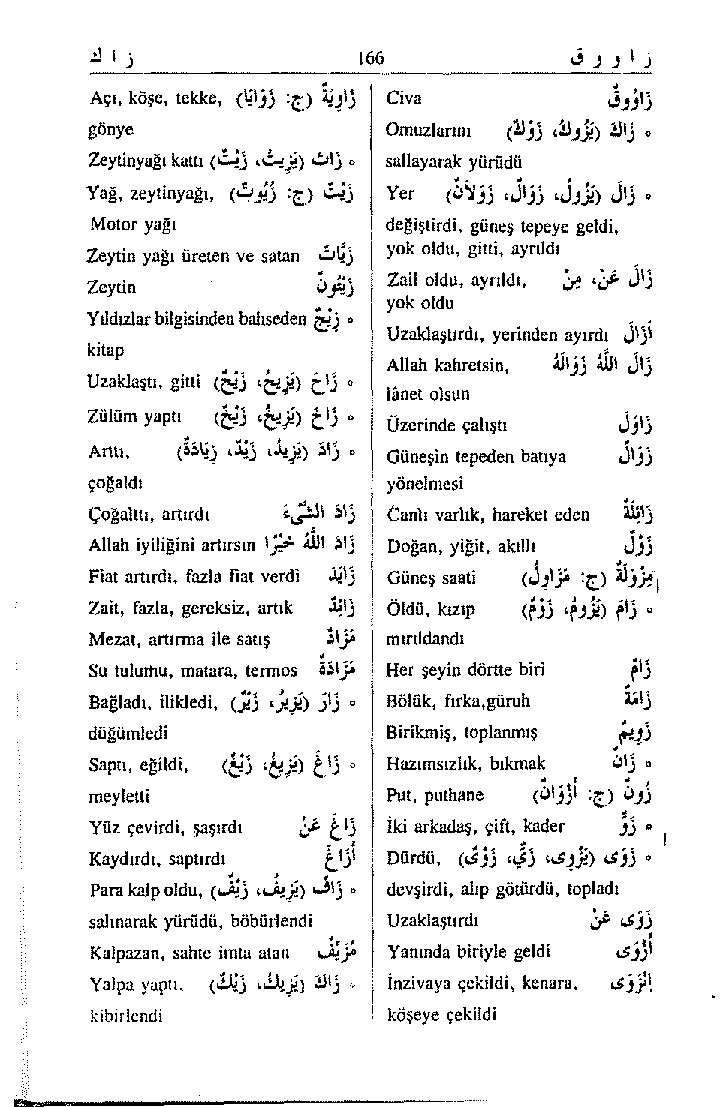 ز ا ك 166 ز ا و و ق
Civa زَاوُوقٌ
Omuzlarını ه زَاكَ (يَزُوكُ، زَوْكٌ)
sallayarak yürüdü
Yer ه زَالَ (يَزُولُ، زَوَالٌ، زَوَلَانٌ)
değiştirdi, güneş tepeye geldi,
yok oldu, gitti, ayrıldı
Zail oldu, ayrıldı, زَالَ عَنْ، مِنْ
yok oldu
Uzaklaştırdı, yerinden ayırdı أَزَالَ
Allah kahretsin, زَالَ اللّٰهُ زَوَالَهُ
lânet olsun
Üzerinde çalıştı زَاوَلَ
Güneşin tepeden batıya زَوَالٌ
yönelmesi
Canlı varlık, hareket eden زَائِلَةٌ
Doğan, yiğit, akıllı زَوْلٌ
Güneş saati مِزْوَلَةٌ (ج: مَزَاوِلُ)
Öldü, kızıp ه زَامَ (يَزُومُ، زَوْمٌ)
mırıldandı
Her şeyin dörtte biri زَامٌ
Bölük, fırka,güruh زَامَةٌ
Birikmiş, toplanmış زَوِيمٌ
Hazımsızlık, bıkmak ه زَانٌ
Put, puthane زُونٌ (ج: أَزْوَانٌ)
İki arkadaş, çift, kader ه زَوٌّ
Dürdü, ه زَوَى (يَزْوِى، زَيٌّ، زَوْىٌ)
devşirdi, alıp götürdü, topladı
Uzaklaştırdı زَوَى عَنْ
Yanında biriyle geldi أَزْوَى
İnzivaya çekildi, kenara, اِنْزَوَى
köşeye çekildi
Açı, köşe, tekke, زَاوِيَةٌ (ج: زَوَايَا)
gönye
Zeytinyağı kattı ه زَاتَ (يَزِيتُ، زَيْتٌ)
Yağ, zeytinyağı, زَيْتٌ (ج: زُيُوتٌ)
Motor yağı
Zeytin yağı üreten ve satan زَيَّاتٌ
Zeytin زَيْتُونٌ
Yıldızlar bilgisinden bahseden ه زِيجٌ
kitap
Uzaklaştı, gitti ه زَاحَ (يَزِيحُ، زَيْحٌ)
Zülüm yaptı ه زَاخَ (يَزِيخُ، زَيْخٌ)
Arttı, ه زَادَ (يَزِيدُ، زَيْدٌ، زِيَادَةٌ)
çoğaldı
Çoğalttı, artırdı زَادَ الشَّىْءَ
Allah iyiliğini artırsın زَادَ اللّٰهُ خَيْرًا
Fiat artırdı, fazla fiat verdi زَايَدَ
Zait, fazla, gereksiz, artık زَائِدٌ
Mezat, artırma ile satış مَزَادٌ
Su tulumu, matara, termos مَزَادَةٌ
Bağladı, ilikledi, ه زَارَ (يَزِيرُ، زَيْرٌ)
düğümledi
Saptı, eğildi, ه زَاغَ (يَزِيغُ، زَيْغٌ)
meyletti
Yüz çevirdi, şaşırdı زَاغَ عَنْ
Kaydırdı, saptırdı أَزَاغَ
Para kalp oldu, ه زَافَ (يَزِيفُ، زَيْفٌ)
salınarak yürüdü, böbürlendi
Kalpazan, sahte imza atan مُزَيِّفٌ
Yalpa yaptı, ه زَاكَ (يَزِيكُ، زَيْكٌ)
kibirlendi